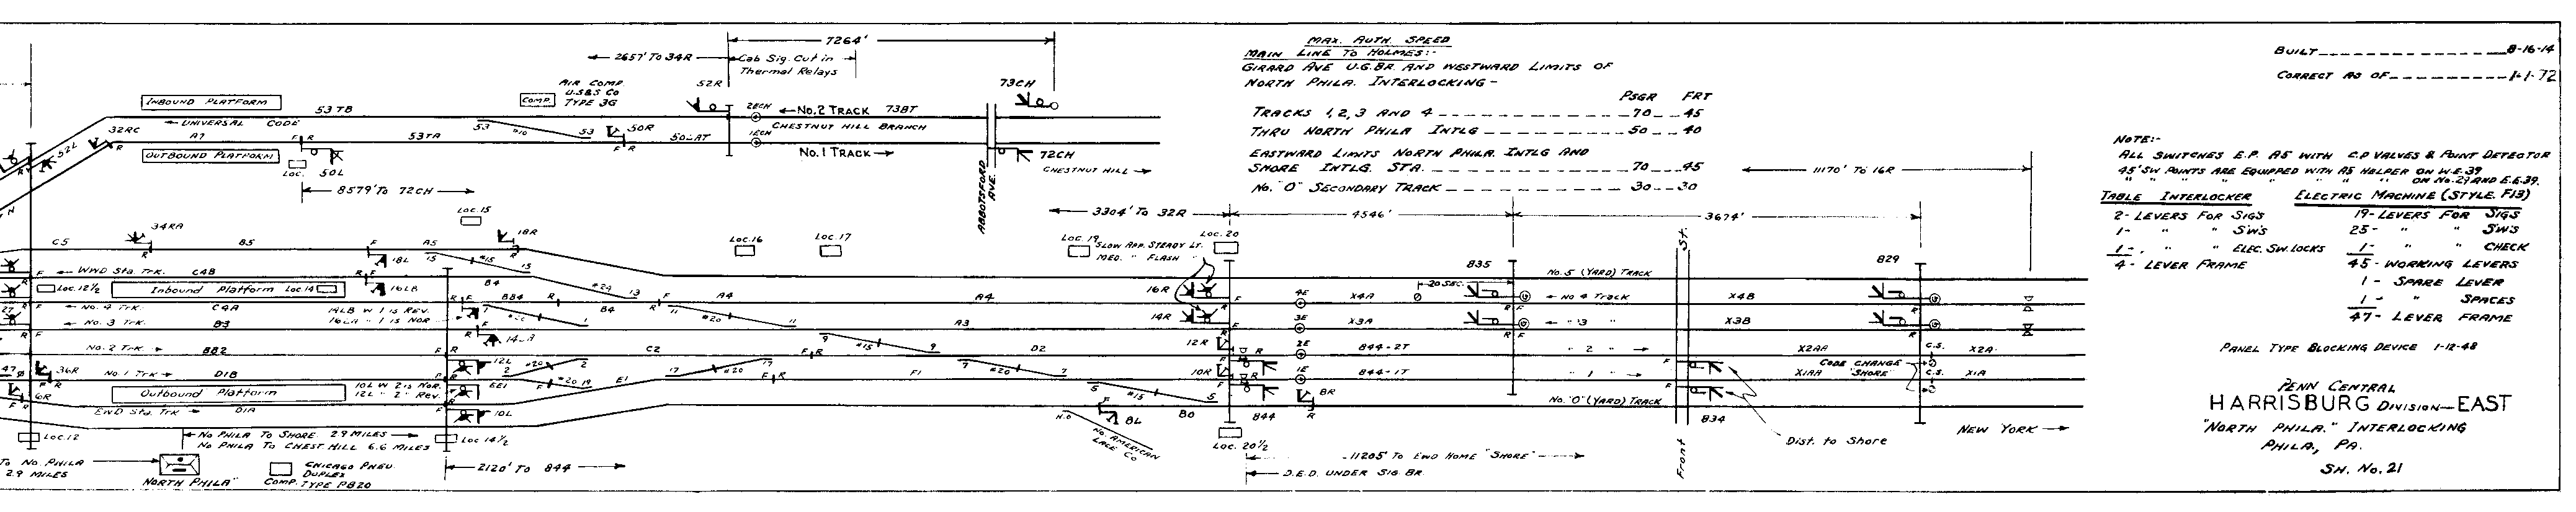 7264'
2657' TO 34R
Cab Sig. Cut in
Thermal Relays
52R
73CH
AIR COMP
U.S&S CO
TYPE 3G
COMP.
INBOUND PLATFORM
53 TB
UNIVERSAL CODE
32RC
A7
F R
53TA
53
#10
53
50R
F R
50-AT
2ECH
1ECH
No.2 TRACK 73BT
CHESTNUT HILL BRANCH
No.1 TRACK
72CH
CHESTNUT HILL
ABBOTSFORD
AVE.
52L
OUTBOUND PLATFORM
LOC.
50L
8579' TO 72CH
MAX. AUTH. SPEED
MAIN LINE TO HOLMES:-
GIRARD AVE U.G.BR. AND WESTWARD LIMITS OF
NORTH PHILA. INTERLOCKING -
PSGR FRT
TRACKS 1,2,3 AND 4 70 45
THRU NORTH PHILA INTLG 50 40
EASTWARD LIMITS NORTH PHILA. INTLG AND
SHORE INTLG. STA. 70 45
NO. "O" SECONDARY TRACK 30 30
BUILT 8-16-14
CORRECT AS OF 1-1-72
NOTE:-
ALL SWITCHES E.P. A5 WITH C.P VALVES & POINT DETECTOR
45' SW POINTS ARE EQUIPPED WITH A5 HELPER ON W.E.39
" " " " " " ON No.29 AND E.E.39.
TABLE INTERLOCKER ELECTRIC MACHINE (STYLE. F13)
2- LEVERS FOR SIGS 19- LEVERS FOR SIGS
1- " " SW'S 25- " " SW'S
1- " " ELEC. SW. LOCKS 1- " " CHECK
4- LEVER FRAME 45- WORKING LEVERS
1- SPARE LEVER
1- " SPACES
47- LEVER FRAME
PANEL TYPE BLOCKING DEVICE 1-12-48
PENN CENTRAL
HARRISBURG DIVISION-EAST
"NORTH PHILA." INTERLOCKING
PHILA., PA.
SH. No. 21
11170' TO 16R
3304' TO 32R
4546'
3674'
LOC.15
C5
34RA
B5
A5
18R
15
#15
15
18L
LOC.16
LOC.17
LOC. 19
LOC. 20
SLOW APP. STEADY LT.
MED. " FLASH
WWD Sta. Trk. C4B
LOC.12½
Inbound Platform LOC.14
16LB
B4
#20
13
NO. 4 TRK. C4A
14LB W 1 IS REV.
16LA " 1 IS NOR
BB4
B4
A4
A4
NO. 3 TRK. B3
11
#20
11
A3
9
#15
9
NO.2 TRK. BB2
12L
C2
D2
NO.1 TRK D1B
36R
10L W 2 IS NOR.
12L " 2 " REV.
EE1
#20
2
#20 19
E1
17
#20
17
F1
7
#20
7
Outbound Platform
EWD STA. TRK D1A
6R
10L
5
#15
5
8L
B0
844
No. AMERICAN
LACE CO
16R
14R
12R
10R
4E
3E
2E
1E
8R
X4A
X3A
844-2T
844-1T
20 SEC.
835
No. 5 (YARD) TRACK
No 4 TRACK
" 3 "
" 2 "
" 1 "
No. "O" (YARD) TRACK
St.
Front
829
X4B
X3B
X2AA
C.S.
X2A
CODE CHANGE
"SHORE"
X1AA
C.S.
X1A
834
Dist. to Shore
NEW YORK
LOC.12
NO PHILA TO SHORE 2.9 MILES
NO PHILA TO CHEST HILL 6.6 MILES
LOC 14½
LOC. 20½
11205' TO EWD HOME "SHORE"
D.E.D. UNDER SIG BR.
2120' TO 844
TO NO. PHILA
2.9 MILES
NORTH PHILA"
CHICAGO PNEU.
DUPLEX
COMP. TYPE PB20